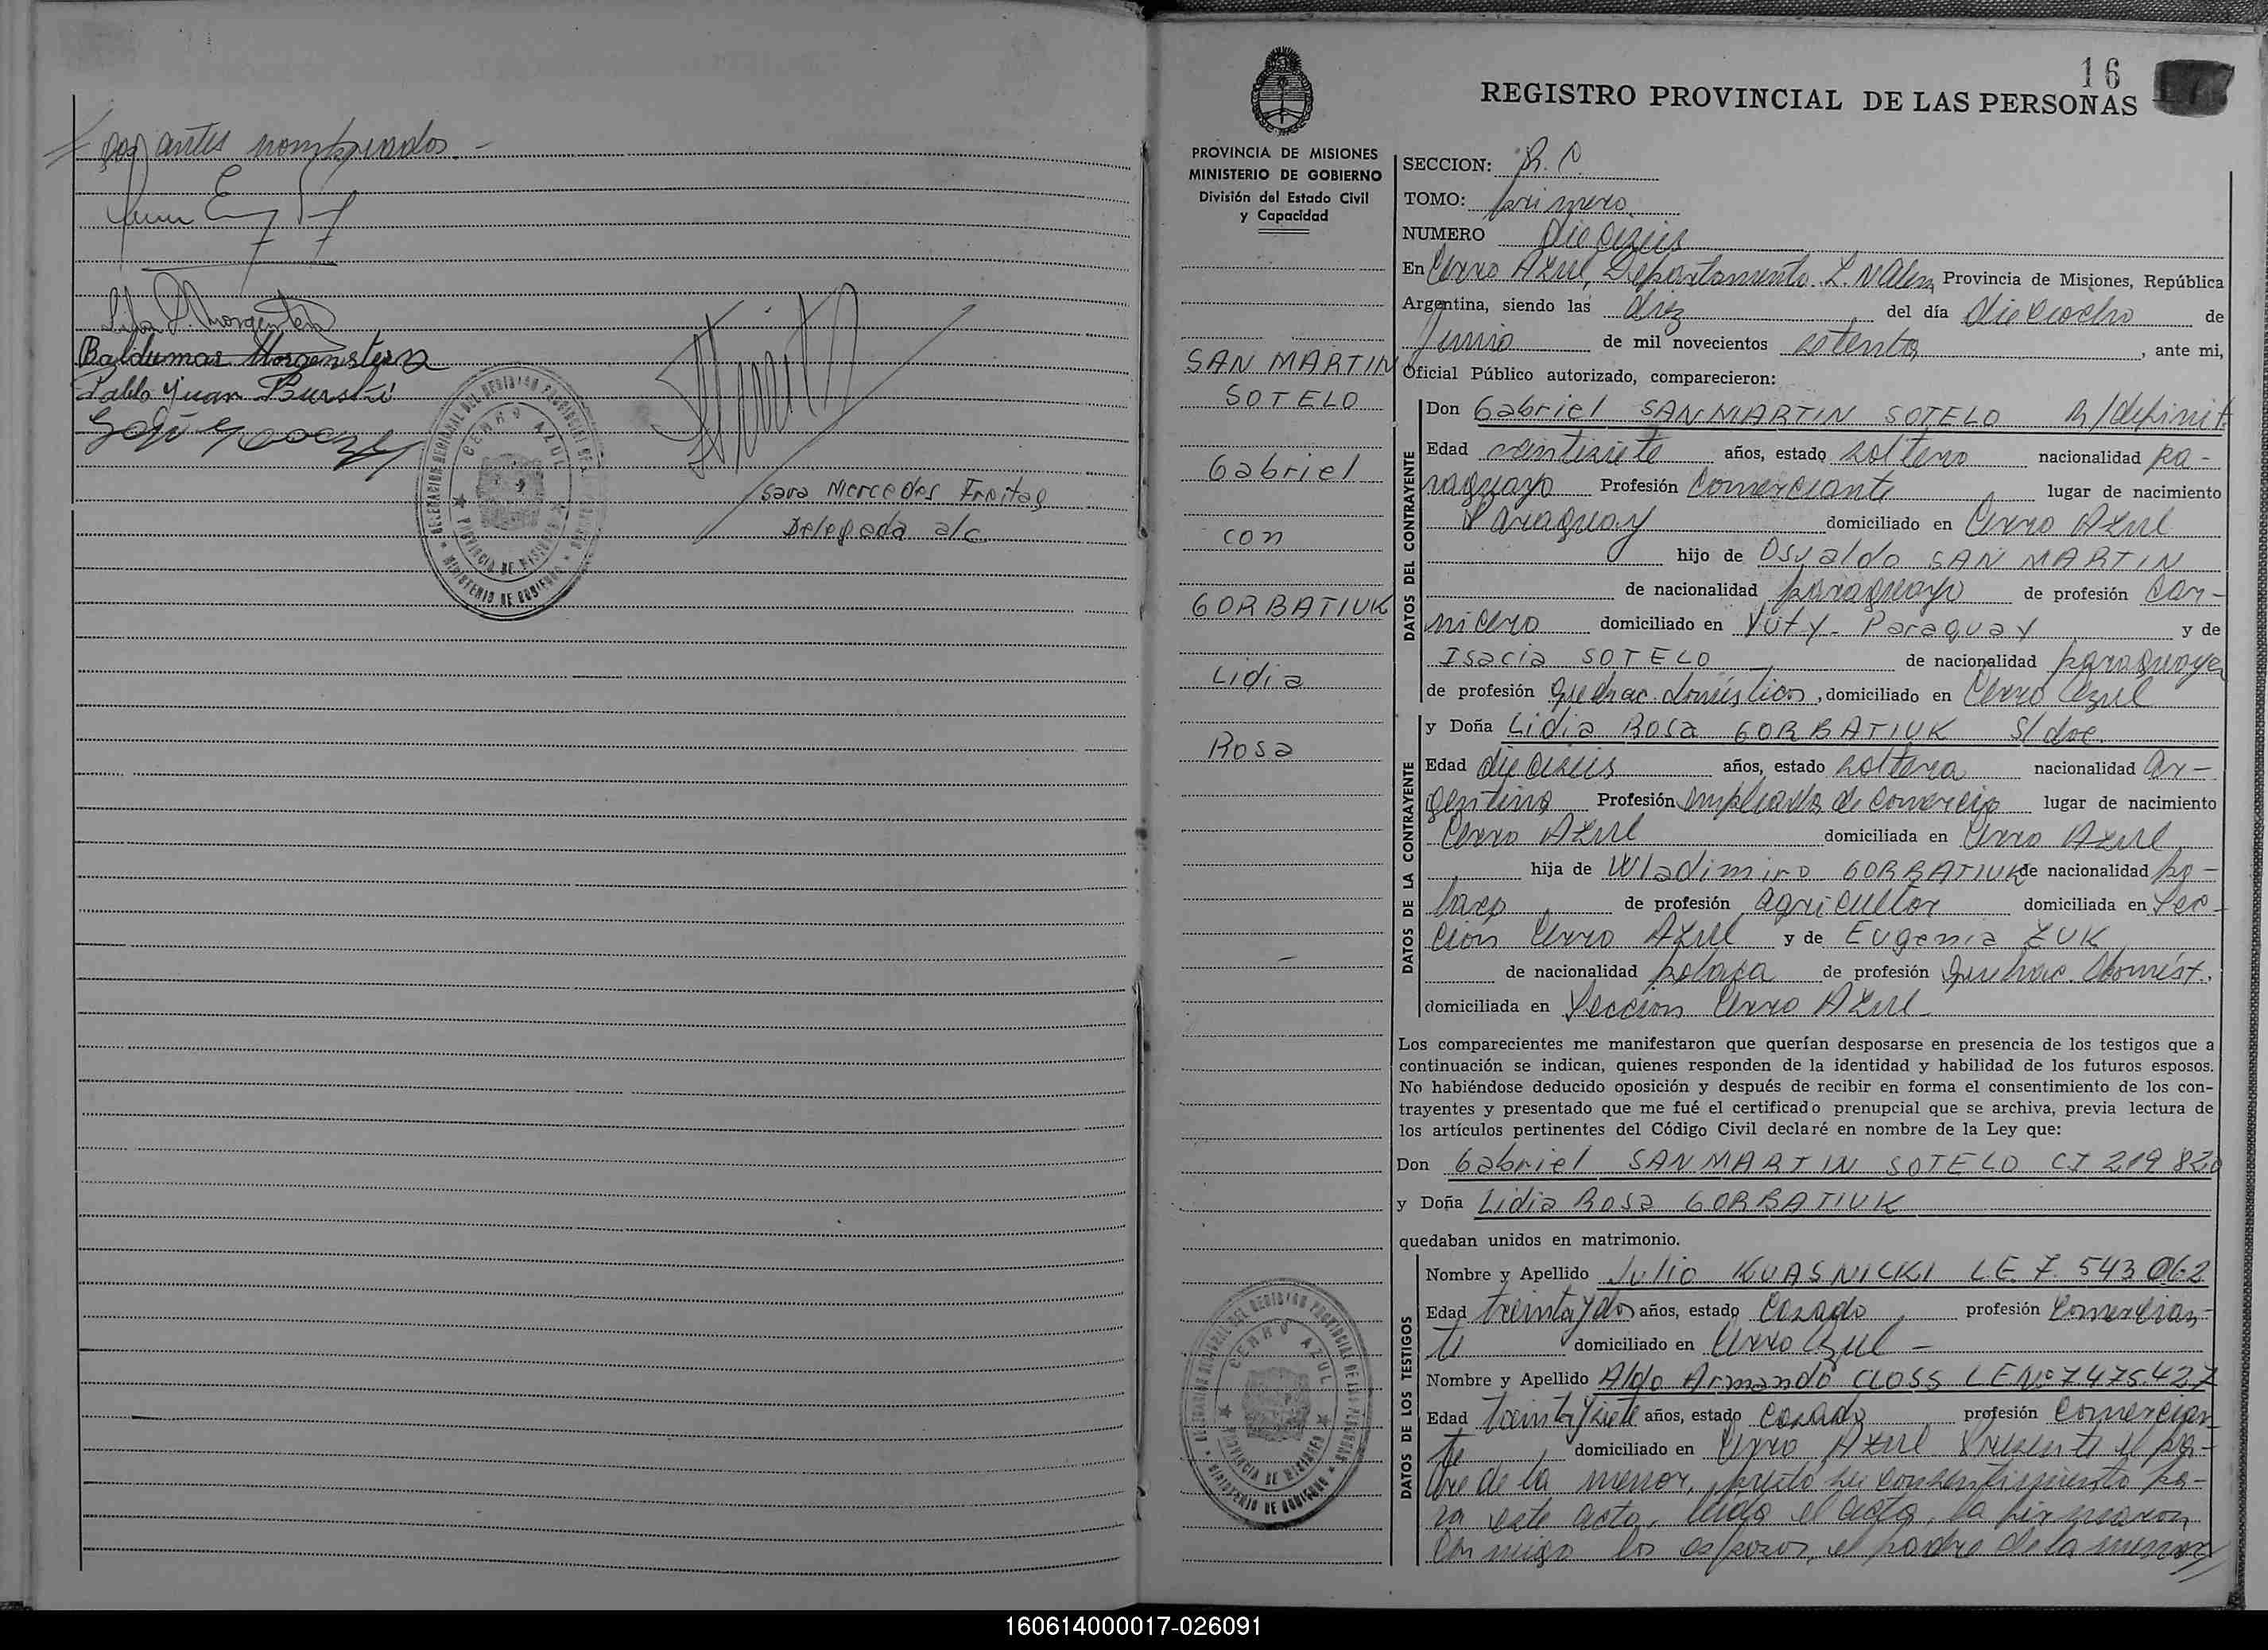 // gos antes nombrados.-
Baldumar Morgenstern
Pablo Juan Burski
Sara Mercedes Freitag
Delegada a/c
DELEGACION SECCIONAL DEL REGISTRO PROVINCIAL DE LAS PERSONAS
CERRO AZUL
PROVINCIA DE MISIONES
MINISTERIO DE GOBIERNO
PROVINCIA DE MISIONES
MINISTERIO DE GOBIERNO
División del Estado Civil
y Capacidad
SAN MARTIN
SOTELO
Gabriel
con
GORBATIUK
Lidia
Rosa
CERRO AZUL
PROVINCIA DE MISIONES
MINISTERIO DE GOBIERNO
16
REGISTRO PROVINCIAL DE LAS PERSONAS
SECCION: R. C.
TOMO: primero
NUMERO dieciseis
En Cerro Azul, Departamento L. N Alem Provincia de Misiones, República
Argentina, siendo las diez del día dieciocho de
Junio de mil novecientos setenta, ante mi,
Oficial Público autorizado, comparecieron:
DATOS DEL CONTRAYENTE
Don Gabriel SAN MARTIN SOTELO R/definit.
Edad veintisiete años, estado soltero nacionalidad pa-
raguayo Profesión Comerciante lugar de nacimiento
Paraguay domiciliado en Cerro Azul
hijo de Osvaldo SAN MARTIN
de nacionalidad paraguayo de profesión Car-
nicero domiciliado en Yuty - Paraguay y de
Isacia SOTELO de nacionalidad paraguaya
de profesión quehac. domésticos, domiciliado en Cerro Azul
DATOS DE LA CONTRAYENTE
y Doña Lidia Rosa GORBATIUK S/ doc.
Edad dieciseis años, estado soltera nacionalidad ar-
gentina Profesión empleada de Comercio lugar de nacimiento
Cerro Azul domiciliada en Cerro Azul
hija de Wladimiro GORBATIUK de nacionalidad po-
laco de profesión agricultor domiciliada en Sec-
cion Cerro Azul y de Eugenia ZUK
de nacionalidad polaca de profesión quehac. domést.
domiciliada en Seccion Cerro Azul -
Los comparecientes me manifestaron que querían desposarse en presencia de los testigos que a
continuación se indican, quienes responden de la identidad y habilidad de los futuros esposos.
No habiéndose deducido oposición y después de recibir en forma el consentimiento de los con-
trayentes y presentado que me fué el certificado prenupcial que se archiva, previa lectura de
los artículos pertinentes del Código Civil declaré en nombre de la Ley que:
Don Gabriel SAN MARTIN SOTELO CI 219 820
y Doña Lidia Rosa GORBATIUK
quedaban unidos en matrimonio.
DATOS DE LOS TESTIGOS
Nombre y Apellido Julio KUASNICKI L.E. 7. 543 062
Edad treinta y dos años, estado Casado profesión Comercian-
te domiciliado en Cerro Azul -
Nombre y Apellido Aldo Armando CLOSS L E Nº 7475.427
Edad treinta y siete años, estado Casado profesión Comercian
te domiciliado en Cerro Azul Presente el pa-
dre de la menor, presto su consentimiento pa-
ra este acto, leida el acta, la firmaron
conmigo los esposos, el padre de la menor//
160614000017-026091